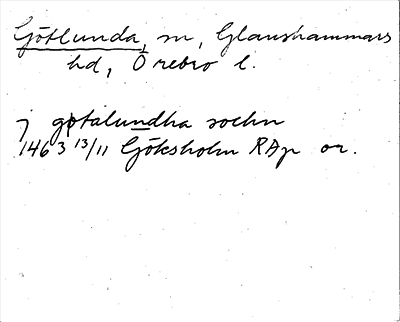 Götlunda, sn, Glanshammars
hd, Örebro l.
j gøtalundha sochn
1463 13/11 Göksholm RAp or.